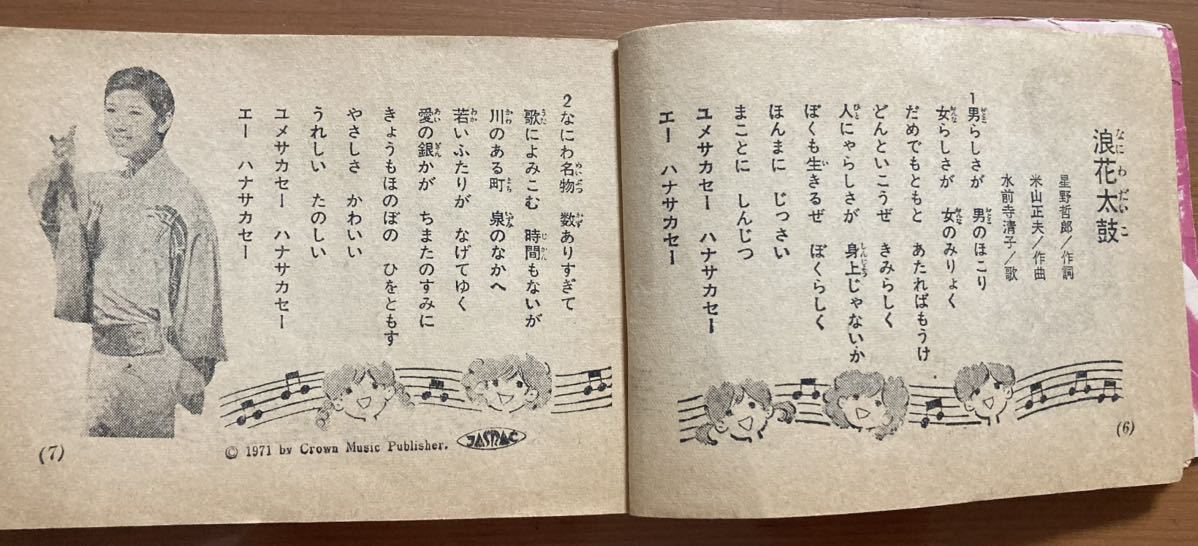 浪花太鼓
なにわだいこ
星野哲郎/作詞
米山正夫/作曲
水前寺清子/歌
1男らしさが 男のほこり
女らしさが 女のみりょく
だめでもともと あたればもうけ
どんといこうぜ きみらしく
人にゃらしさが 身上じゃないか
ぼくも生きるぜ ぼくらしく
ほんまに じっさい
まことに しんじつ
ユメサカセー ハナサカセー
エー ハナサカセー
(6)
2なにわ名物 数ありすぎて
歌によみこむ 時間もないが
川のある町 泉のなかへ
若いふたりが なげてゆく
愛の銀かが ちまたのすみに
きょうもほのぼの ひをともす
やさしさ かわいい
うれしい たのしい
ユメサカセー ハナサカセー
エー ハナサカセー
© 1971 by Crown Music Publisher.
JASRAC
(7)